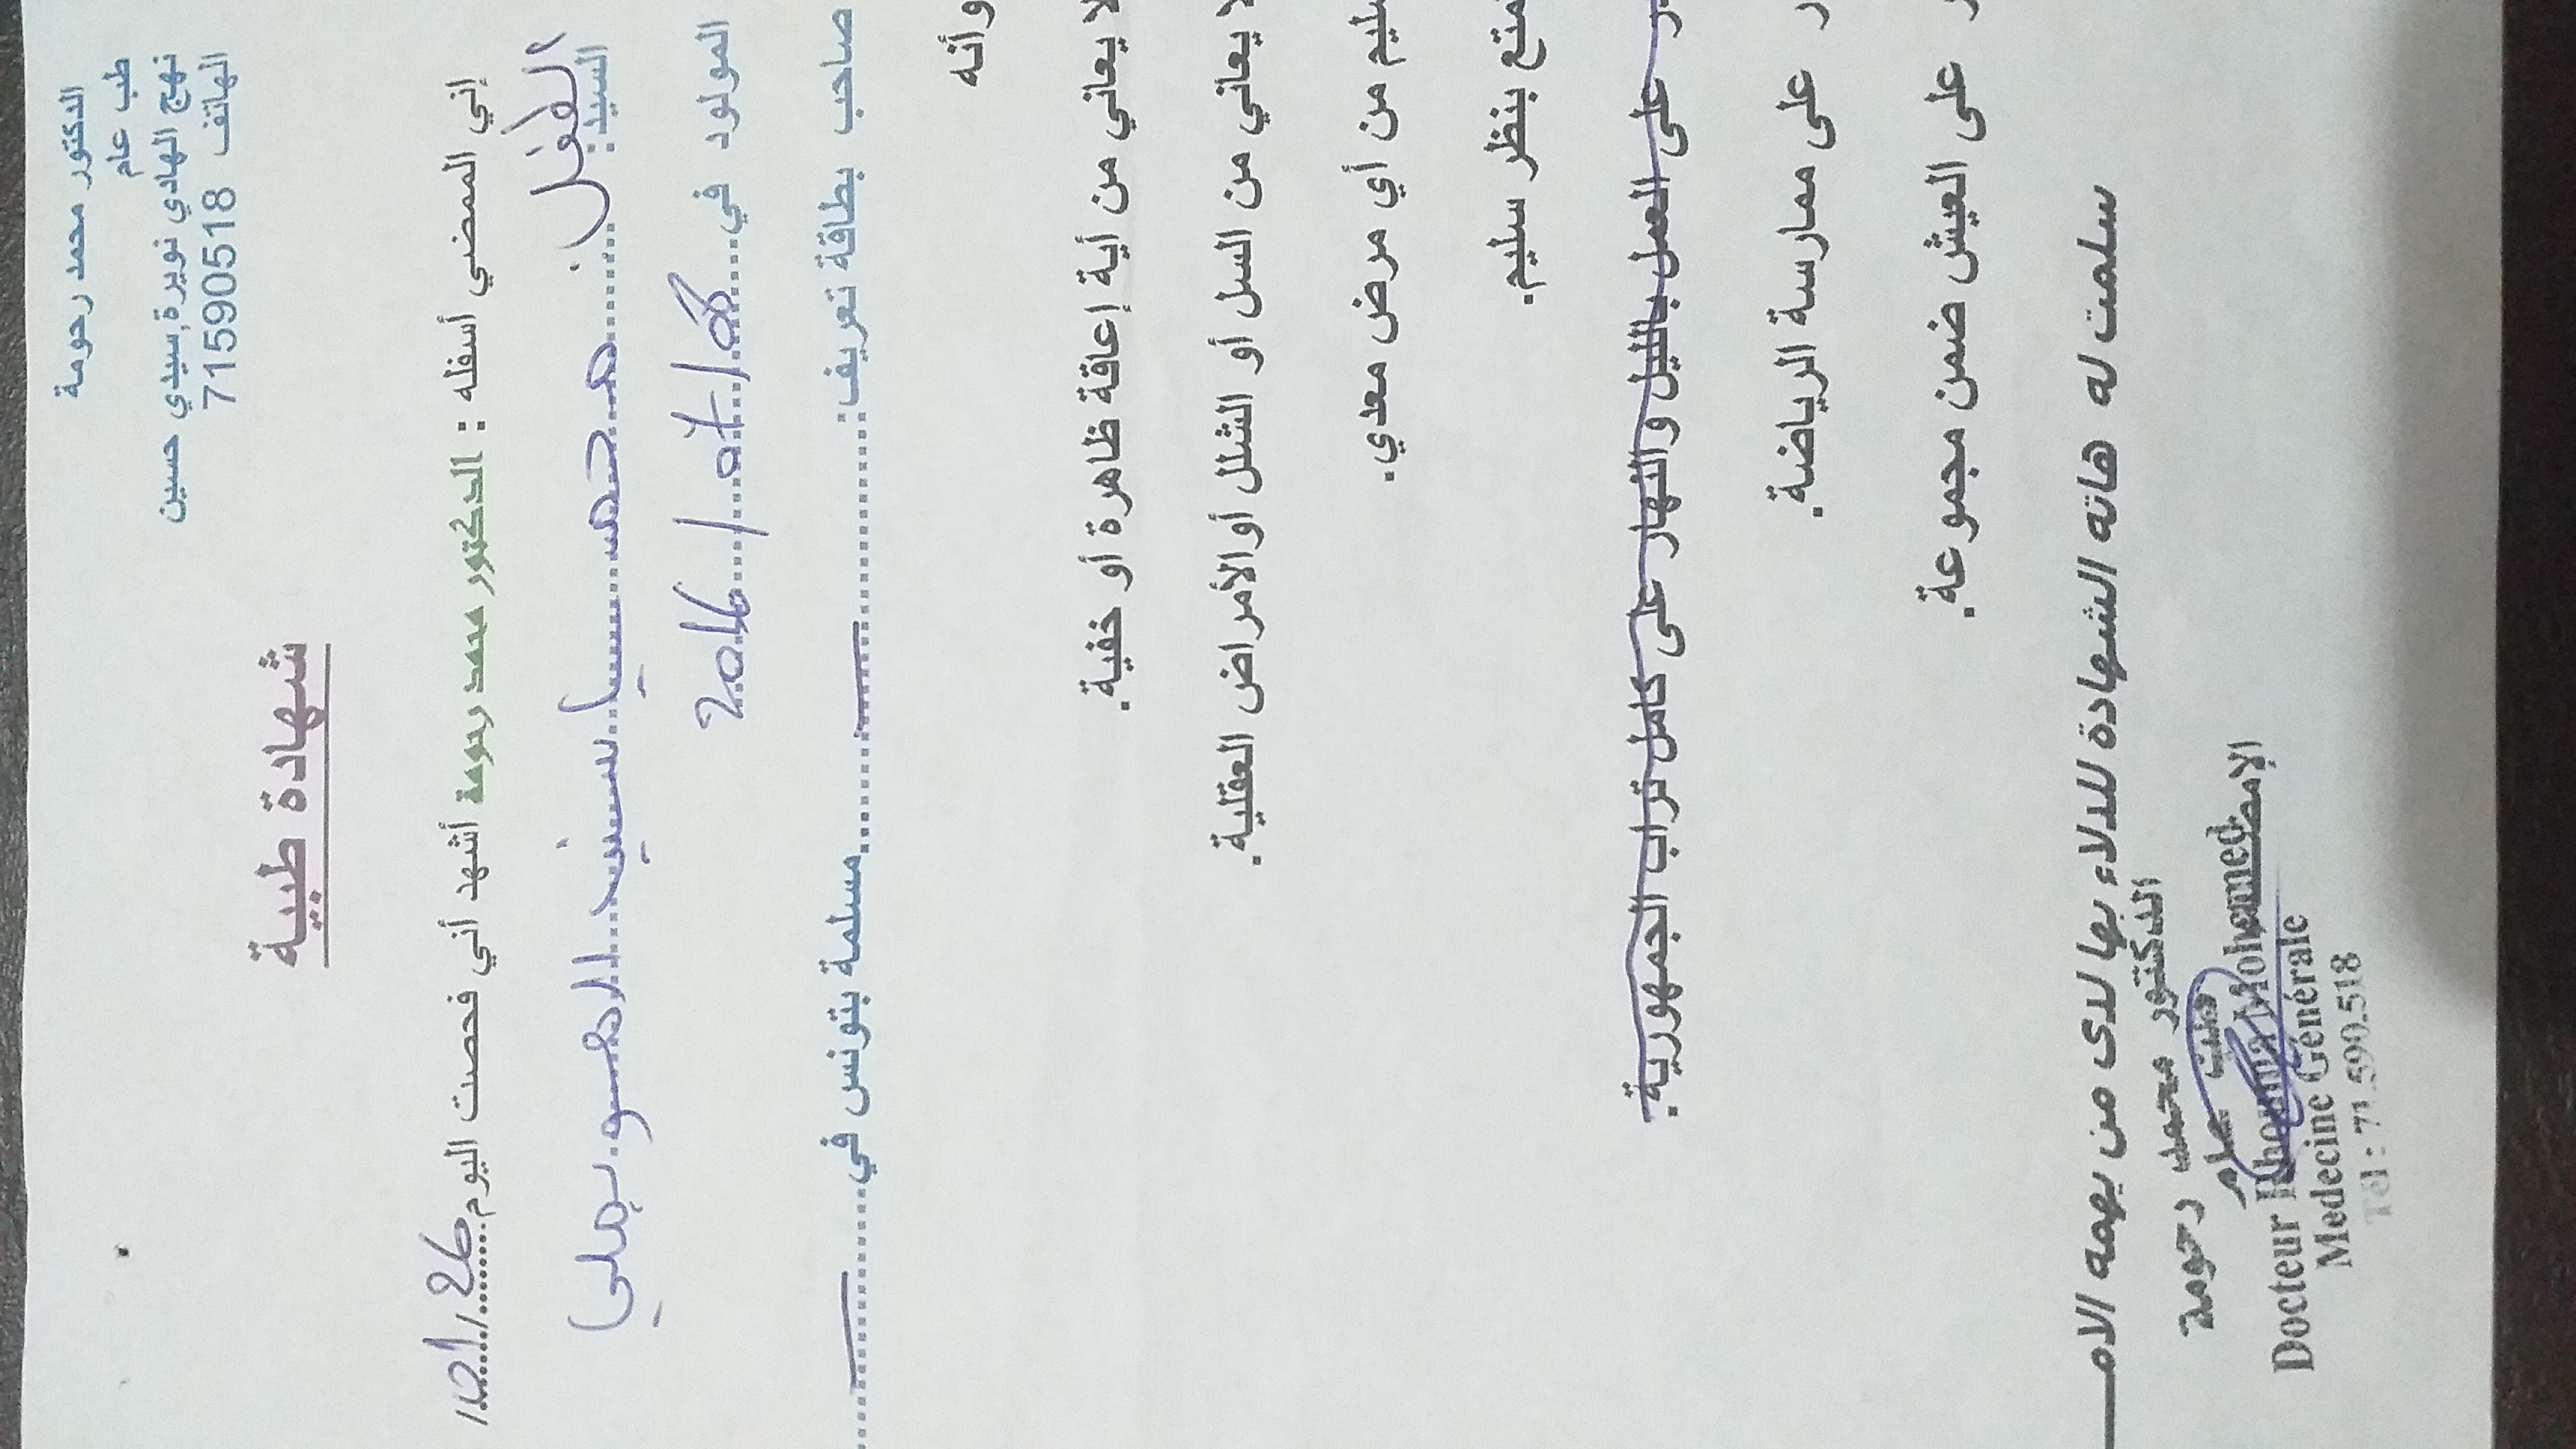 الدكتور محمد رحومة
طب عام
نهج الهادي نويرة سيدي حسين
الهاتف 71590518
شهادة طبية
إني الممضي أسفله : الدكتور محمد رحومة أشهد أني فحصت اليوم
السيد: الطفل محمد ياسين
المولود في 2016/07/08
صاحب بطاقة تعريف: مسلمة بتونس في
وأنه
لا يعاني من أية إعاقة ظاهرة أو خفية.
لا يعاني من السل أو الشلل أو الأمراض العقلية.
من أي مرض معدي.
بنظر سليم.
على العمل بالليل والنهار على كامل تراب الجمهورية.
على ممارسة الرياضة.
على العيش ضمن مجموعة.
سلمت له هاته الشهادة للادلاء بها لدى من يهمه الامـ
الإمضاء
الدكتور محمد رحومة
طب عام
Docteur Rhouma Mohamed
Medecine Générale
Tél : 71.590.518